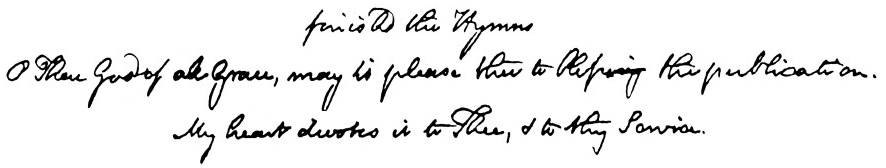 finis'd the Hymns
O Thou God of all Grace, may it please thee to bless the publication.
My heart devotes it to Thee, & to thy Service.